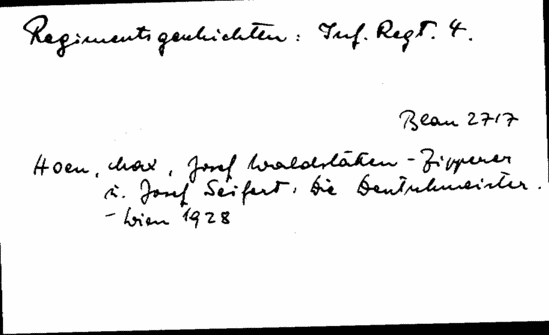 Regimentsgeschichten: Inf. Regt. 4.
Blau 2717
Hoen, Max, Josef Waldstätten-Zipperer
u. Josef Seifert: Die Deutschmeister.
- Wien 1928